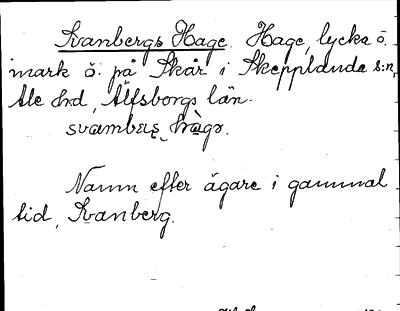 Svanbergs Hage. Hage, lycka o.
mark ö. på Skår i Skepplanda s:n,
Ale hrd, Älfsborgs län.
svambærs hàgə.
Namn efter ägare i gammal
tid, Svanberg.